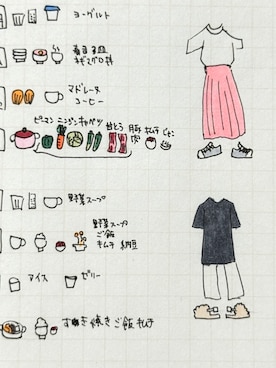 ヨーグルト
3皿
ネギマグロ丼
マドレーヌ
コーヒー
ピーマン ニンジン キャベツ 甘とう 豚肉 キムチ
野菜スープ
野菜スープ
ご飯
キムチ 納豆
アイス ゼリー
すき焼き ご飯 キムチ